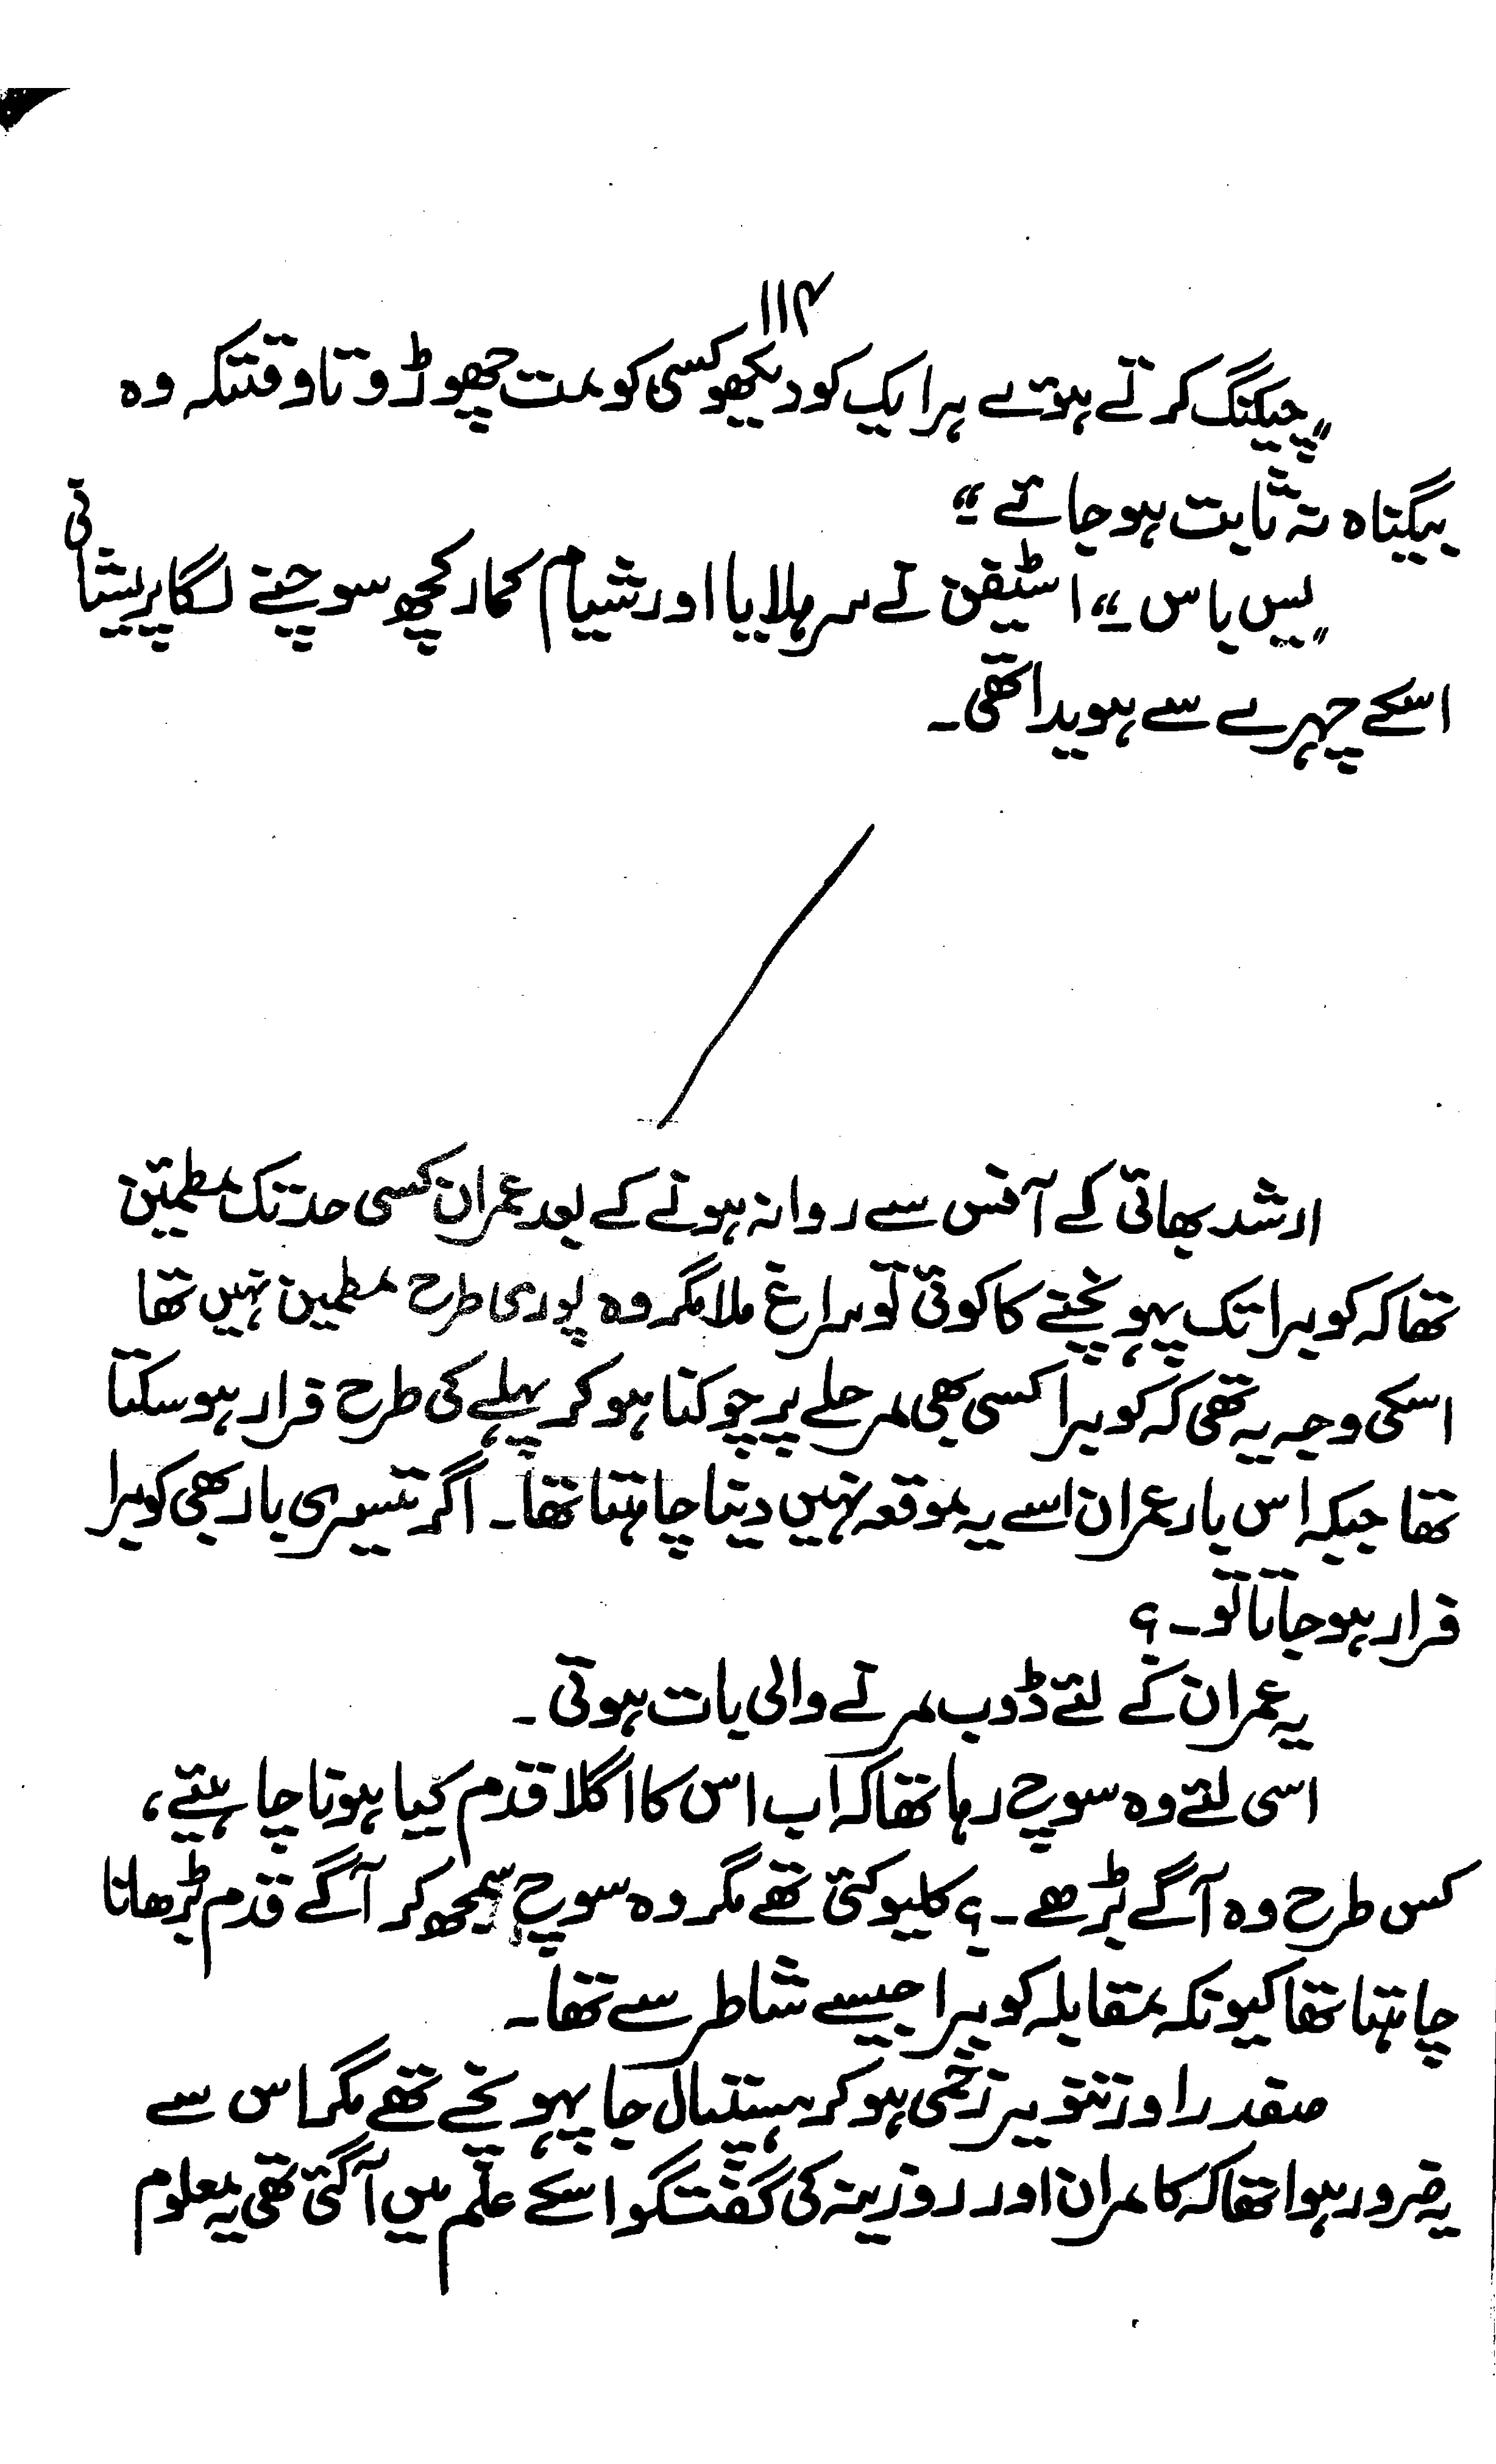 ۱۱۴
"چیکنگ کرتے ہوئے ہر ایک کو دیکھو کسی کو مت چھوڑو تاوقتیکہ وہ
بیگناہ نہ ثابت ہو جائے۔"
"یس باس۔" اسٹیفن نے سر ہلایا اور شیام کمار کچھ سوچنے لگا پریشانی
اسکے چہرے سے ہویدا تھی۔
ارشد بھائی کے آفس سے روانہ ہونے کے بعد عمران کسی حد تک مطمئن
تھا کہ کوبرا تک پہونچنے کا کوئی تو سراغ ملا مگر وہ پوری طرح مطمئن نہیں تھا
اسکی وجہ یہ تھی کہ کوبرا کسی بھی مرحلے پر چوکنا ہو کر پہلے کی طرح فرار ہو سکتا
تھا جبکہ اس بار عمران اسے یہ موقعہ نہیں دینا چاہتا تھا۔ اگر تیسری بار بھی کوبرا
فرار ہو جاتا تو۔؟
یہ عمران کے لئے ڈوب مرنے والی بات ہوتی۔
اسی لئے وہ سوچ رہا تھا کہ اب اس کا اگلا قدم کیا ہونا چاہیئے،
کس طرح وہ آگے بڑھے۔؟ کلیو کئی تھے مگر وہ سوچ سمجھ کر آگے قدم بڑھانا
چاہتا تھا کیونکہ مقابلہ کوبرا جیسے شاطر سے تھا۔
صفدر اور تنویر زخمی ہو کر ہسپتال جا پہونچے تھے مگر اس سے
یہ ضرور ہوا تھا کہ کامران اور روزینہ کی گفتگو اسکے علم میں آ گئی تھی یہ معلوم